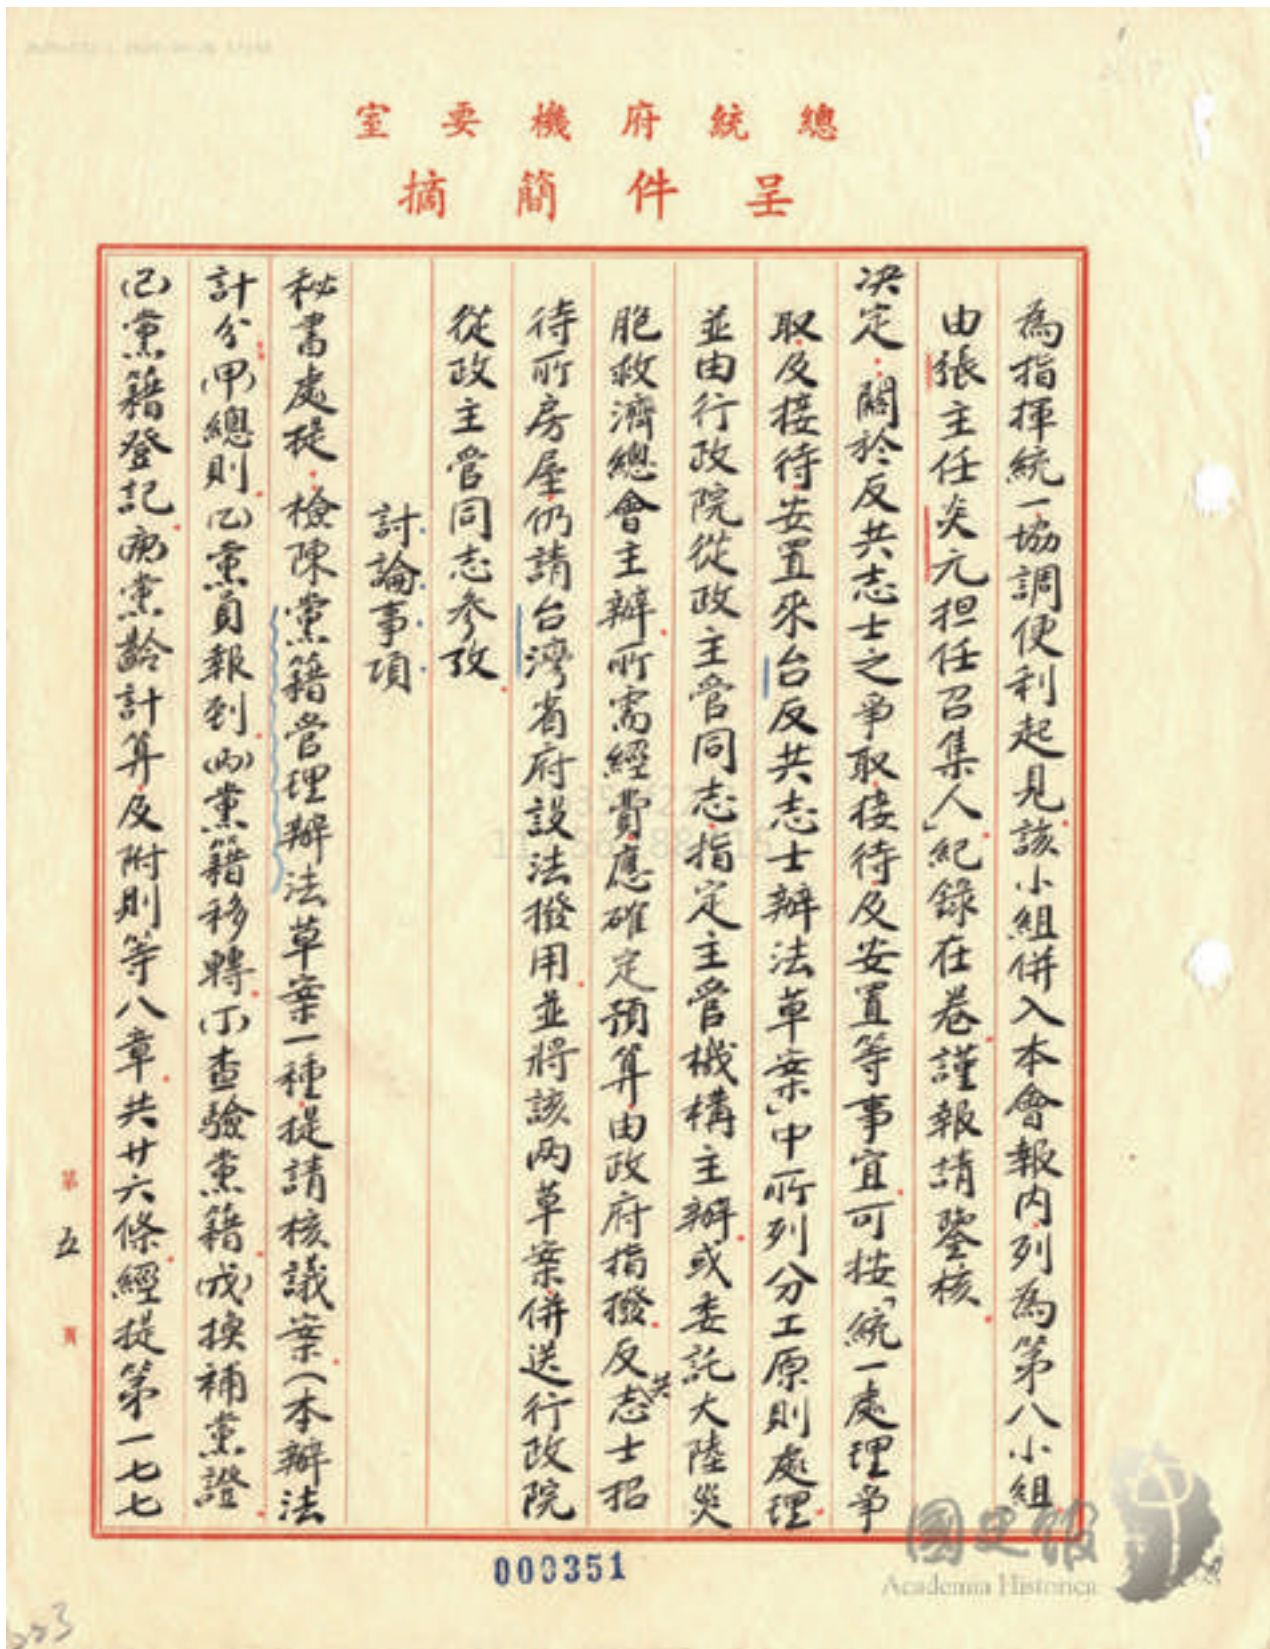 總統府機要室
呈件簡摘
為指揮統一協調便利起見該小組併入本會報內列為第八小組
由張主任炎元担任召集人」紀錄在卷謹報請鑒核
決定：關於反共志士之爭取接待及安置等事宜可按「統一處理爭
取及接待安置來台反共志士辦法草案」中所列分工原則處理
並由行政院從政主管同志指定主管機構主辦或委託大陸災
胞救濟總會主辦所需經費應確定預算由政府指撥反共志士招
待所房屋仍請台灣省府設法撥用並將該兩草案併送行政院
從政主管同志參攷
討論事項
秘書處提：檢陳黨籍管理辦法草案一種提請核議案（本辦法
計分(甲)總則(乙)黨員報到(丙)黨籍移轉(丁)查驗黨籍(戊)換補黨證
(己)黨籍登記(庚)黨齡計算及附則等八章共廿六條經提第一七七
第五頁
000351
國史館
Academia Historica